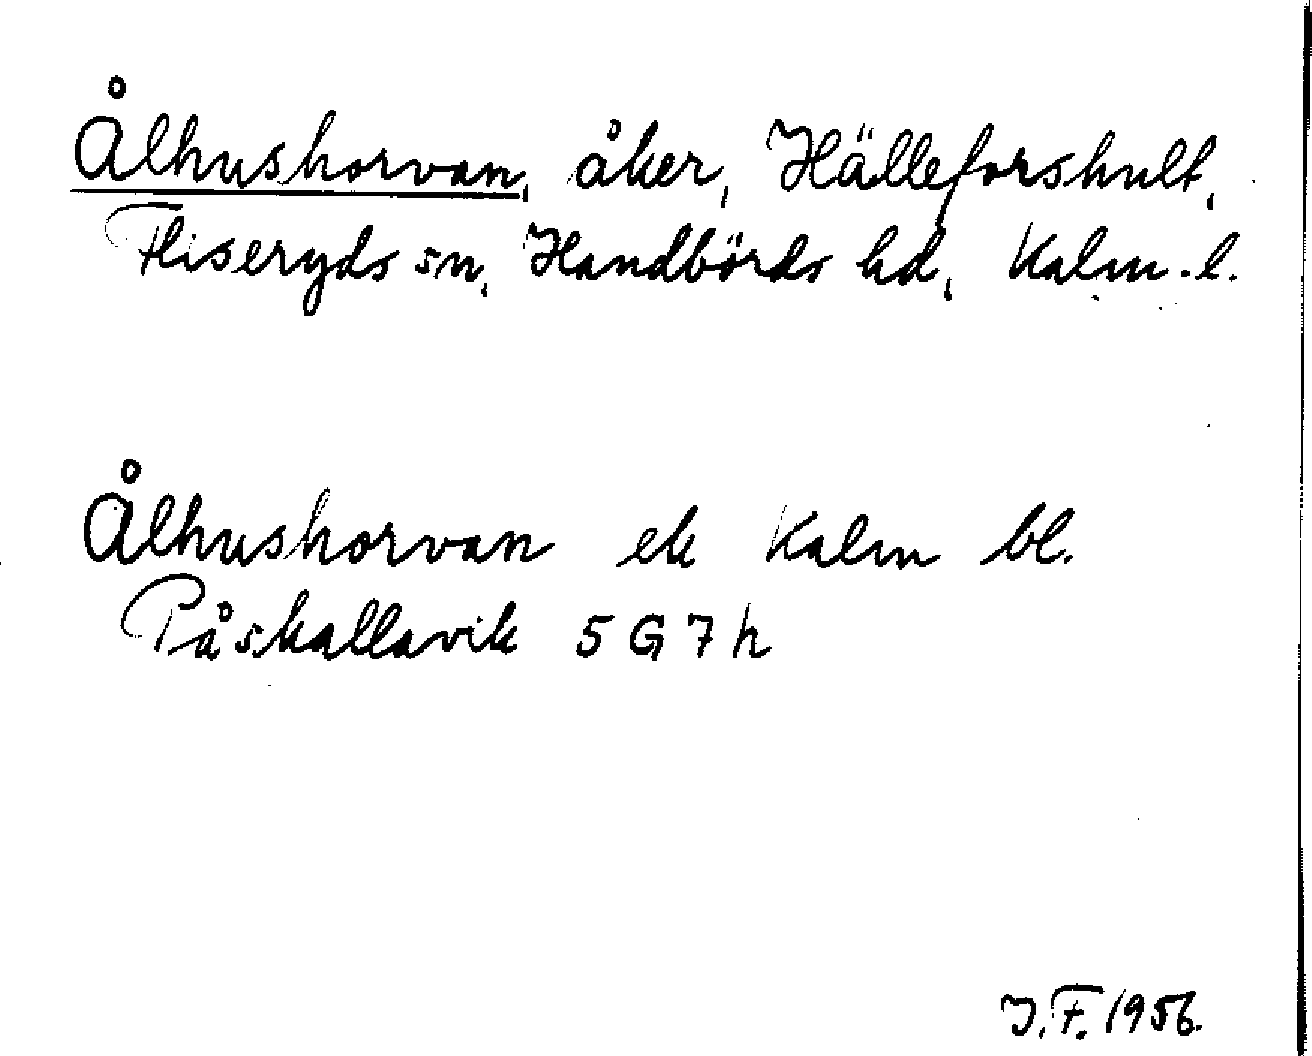 Ålhushorvan, åker, Hälleforshult,
Fliseryds sn, Handbörds hd, Kalm. l.
Ålhushorvan ek Kalm bl.
Påskallavik 5 G 7 h
J.F. 1956.